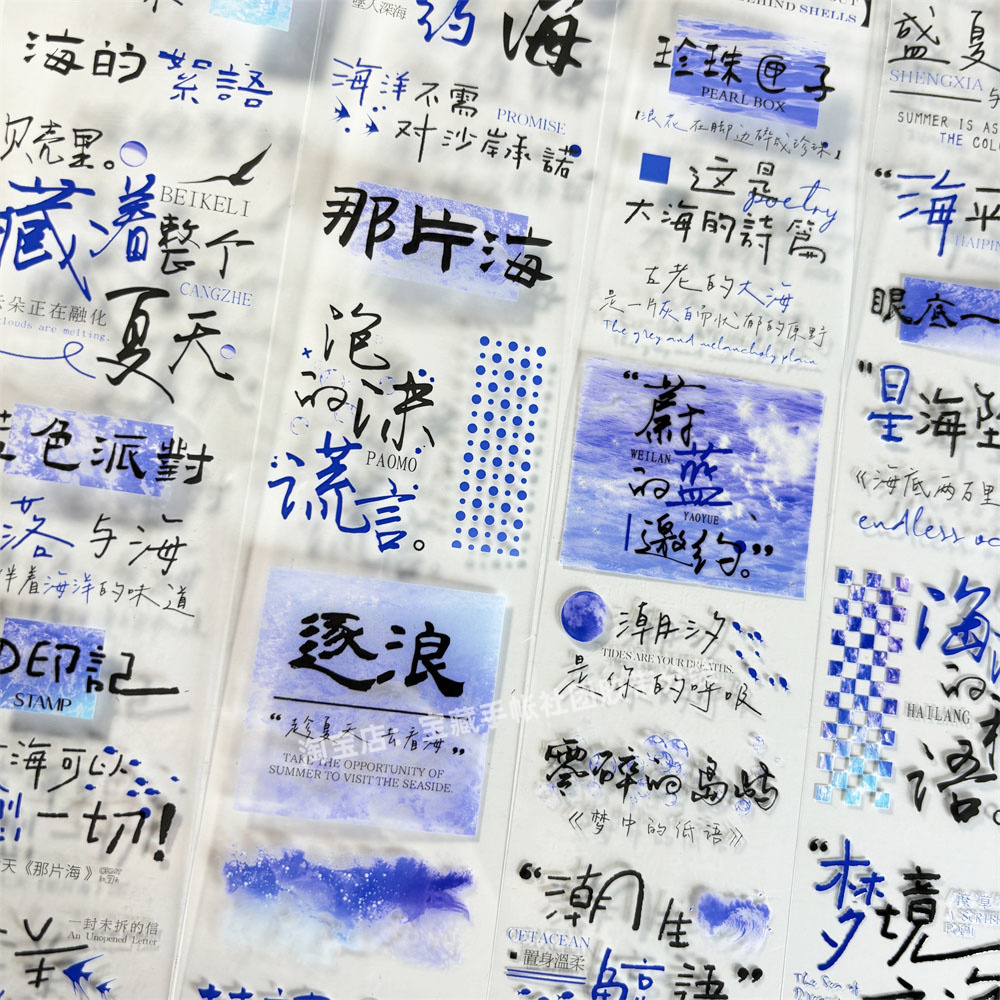 海的絮語
贝壳里。
藏着
BEIKELI
整个
CANGZHE
云朵正在融化
clouds are melting.
夏天
蓝色派對
落与海
伴着海洋的味道
印記
STAMP
海可以
一切!
天《那片海》
一封未拆的信
An Unopened Letter
坠入深海
约
海
海洋不需
PROMISE
对沙岸承諾
那片海
泡
的沫
PAOMO
谎言。
逐浪
“趁夏天去看海”
TAKE THE OPPORTUNITY OF
SUMMER TO VISIT THE SEASIDE.
BEHIND SHELLS
珍珠匣子
PEARL BOX
『浪花在脚边碎成珍珠』
这是
poetry
大海的詩篇
古老的大海
是一片灰暗忧郁的原野
The grey and melancholy plain
“蔚
WEILAN
的蓝
YAOYUE
邀约。”
潮汐
TIDES ARE YOUR BREATHS.
是你的呼吸
零碎的島嶼
《梦中的低语》
“潮生
CETACEAN
置身溫柔
語”
盛夏
SHENGXIA
与
SUMMER IS AS
THE COLO
“海平
HAIPIN
眼底一
“星海坠
《海底两万里
endless oc
海
的
HAILANG
语。
“梦境
The Sea of
淘宝店：宝藏手帐社团